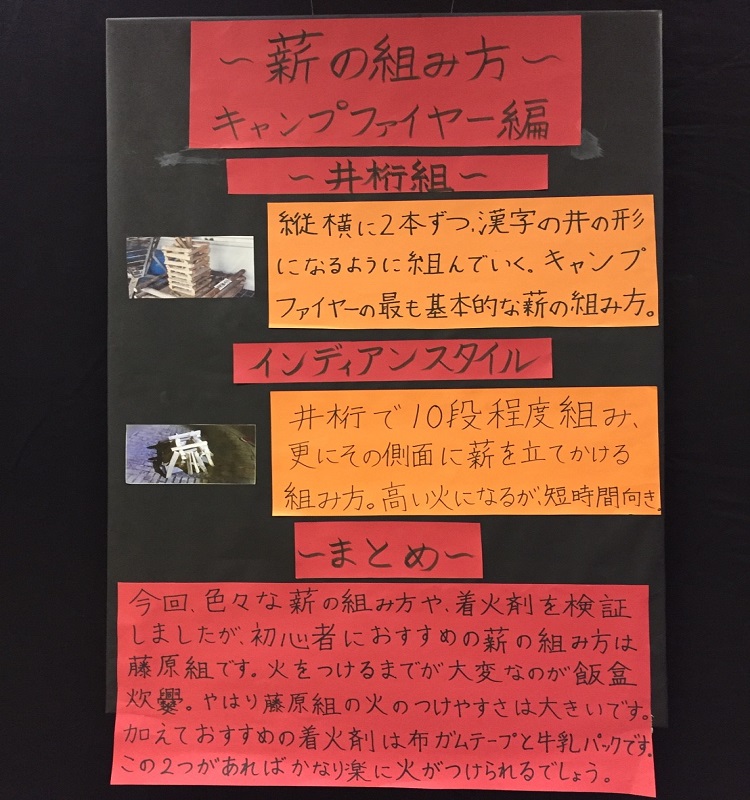 ～薪の組み方～
キャンプファイヤー編
～井桁組～
縦横に2本ずつ、漢字の井の形
になるように組んでいく。キャンプ
ファイヤーの最も基本的な薪の組み方。
インディアンスタイル
井桁で10段程度組み、
更にその側面に薪を立てかける
組み方。高い火になるが、短時間向き。
～まとめ～
今回、色々な薪の組み方や、着火剤を検証
しましたが、初心者におすすめの薪の組み方は
藤原組です。火をつけるまでが大変なのが飯盒
炊爨。やはり藤原組の火のつけやすさは大きいです。
加えておすすめの着火剤は布ガムテープと牛乳パックです。
この2つがあればかなり楽に火がつけられるでしょう。